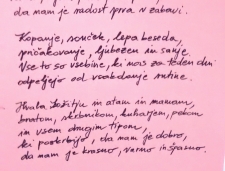 da nam je radost prva v zabavi.
Kopanje, sonček, lepa beseda,
pričakovanje, ljubezen in sanje.
Vse to so vsebine, ki nas za teden dni
odpeljejo od vsakdanje rutine.
Hvala Božitju in atom in mamam,
bratom, skrbnikom, kuharjem, psom
in vsem drugim tipom,
ki poskrbijo, da nam je dobro,
da nam je krasno, varno in športno.